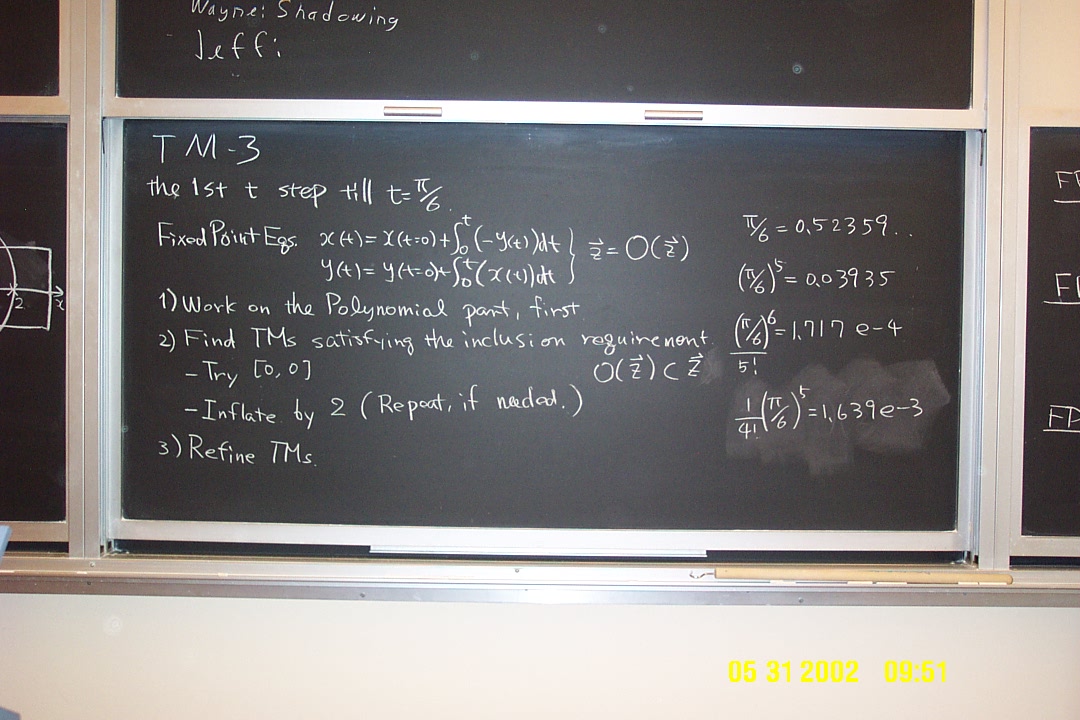 Wayne: Shadowing
Jeff:
TM-3
the 1st t step till t=π/6.
Fixed Point Eqs. x(t)=x(t=0)+∫₀ᵗ(-y(t))dt } z⃗=O(z⃗)
y(t)=y(t=0)+∫₀ᵗ(x(t))dt
1) Work on the Polynomial part, first
2) Find TMs satisfying the inclusion requirement.
O(z⃗)⊂z⃗
-Try [0,0]
-Inflate by 2 (Repeat, if needed.)
3) Refine TMs.
π/6=0.52359..
(π/6)⁵=0.03935
(π/6)⁶/5!=1.717 e-4
1/4!(π/6)⁵=1.639e-3
2
x
05 31 2002 09:51